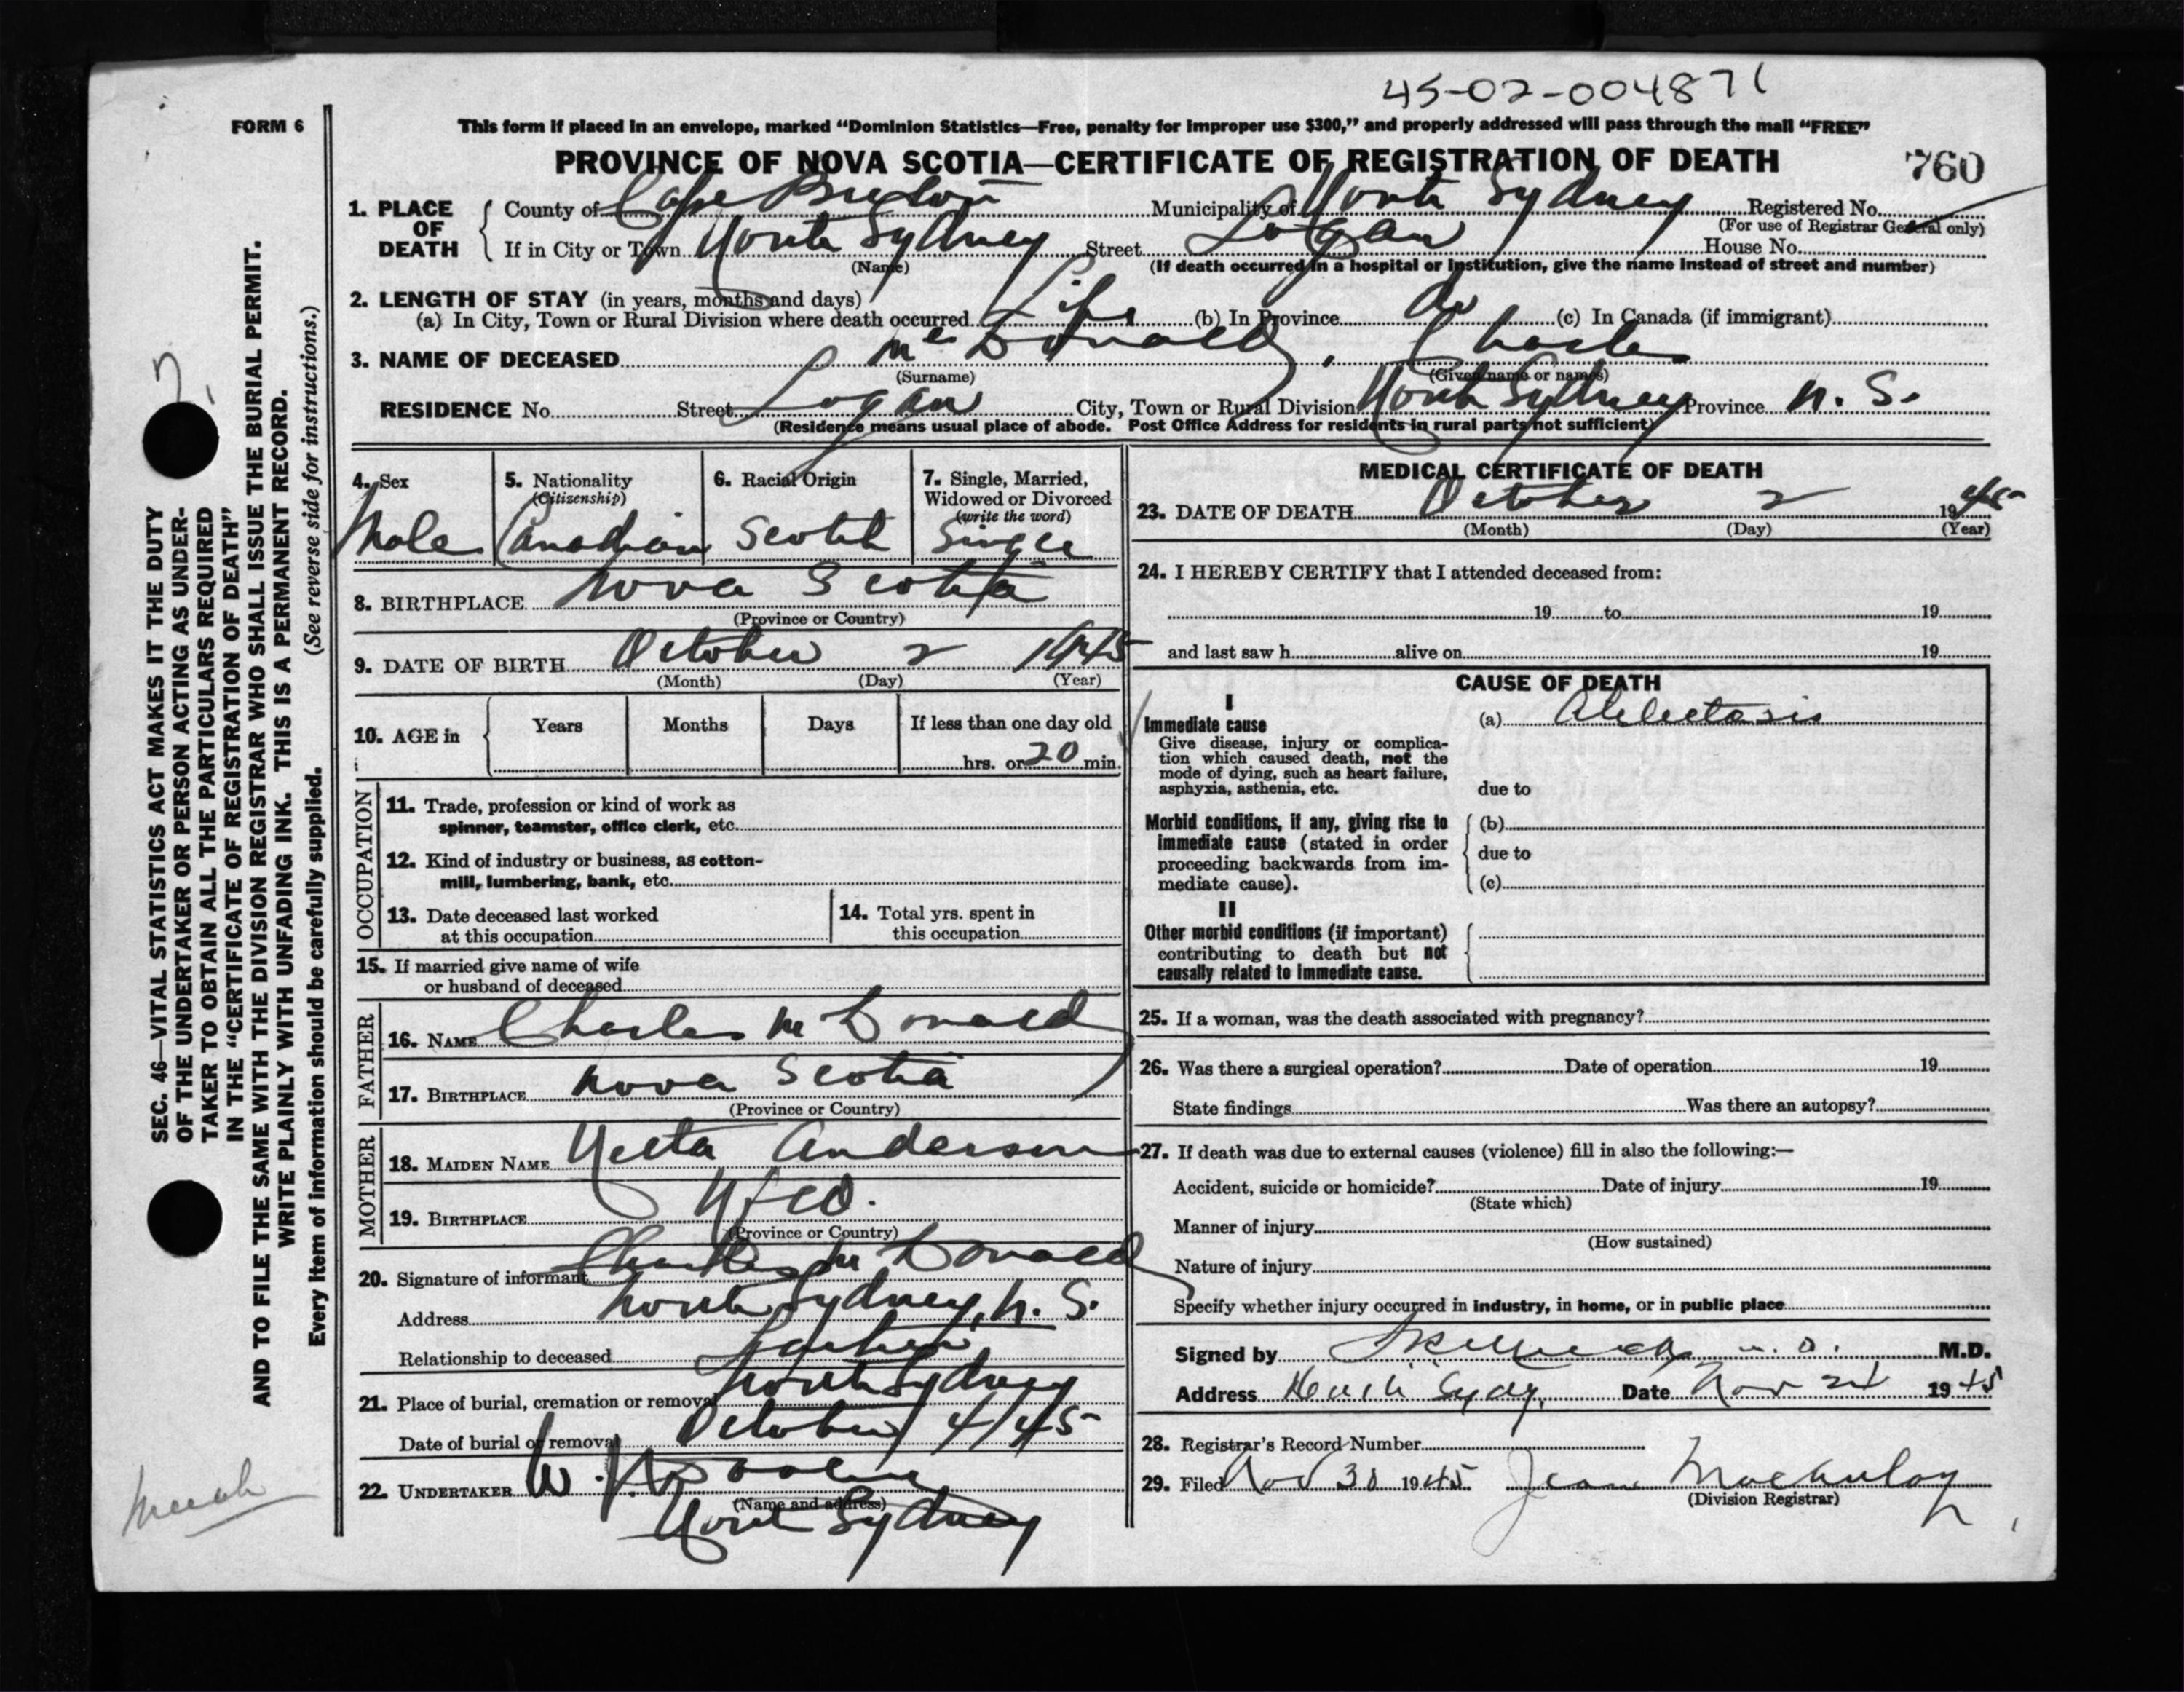 45-02-004871
FORM 6
This form if placed in an envelope, marked "Dominion Statistics—Free, penalty for improper use $300," and properly addressed will pass through the mail "FREE"
PROVINCE OF NOVA SCOTIA—CERTIFICATE OF REGISTRATION OF DEATH
760
1. PLACE OF DEATH
County of Cape Breton Municipality of North Sydney Registered No.
(For use of Registrar General only)
If in City or Town North Sydney Street Logan House No.
(Name) (If death occurred in a hospital or institution, give the name instead of street and number)
2. LENGTH OF STAY (in years, months and days)
(a) In City, Town or Rural Division where death occurred Life (b) In Province do (c) In Canada (if immigrant)
3. NAME OF DECEASED McDonald, Charles
(Surname) (Given name or names)
RESIDENCE No. Street Logan City, Town or Rural Division North Sydney Province N. S.
(Residence means usual place of abode. Post Office Address for residents in rural parts not sufficient)
4. Sex
Male
5. Nationality
(Citizenship)
Canadian
6. Racial Origin
Scotch
7. Single, Married,
Widowed or Divorced
(write the word)
Single
8. BIRTHPLACE Nova Scotia
(Province or Country)
9. DATE OF BIRTH October 2 1945
(Month) (Day) (Year)
10. AGE in
Years Months Days If less than one day old
hrs. or 20 min.
OCCUPATION
11. Trade, profession or kind of work as
spinner, teamster, office clerk, etc.
12. Kind of industry or business, as cotton-
mill, lumbering, bank, etc.
13. Date deceased last worked
at this occupation
14. Total yrs. spent in
this occupation
15. If married give name of wife
or husband of deceased
FATHER
16. NAME Charles McDonald
17. BIRTHPLACE Nova Scotia
(Province or Country)
MOTHER
18. MAIDEN NAME Neeta Anderson
19. BIRTHPLACE Nfld.
(Province or Country)
20. Signature of informant Charles McDonald
Address North Sydney, N. S.
Relationship to deceased Father
21. Place of burial, cremation or removal North Sydney
Date of burial or removal October 4/45
22. UNDERTAKER W.
(Name and address)
North Sydney
MEDICAL CERTIFICATE OF DEATH
23. DATE OF DEATH October 2 1945
(Month) (Day) (Year)
24. I HEREBY CERTIFY that I attended deceased from:
19 to 19
and last saw h alive on 19
CAUSE OF DEATH
I
Immediate cause (a) Atelectasis
Give disease, injury or complica-
tion which caused death, not the
mode of dying, such as heart failure,
asphyxia, asthenia, etc. due to
Morbid conditions, if any, giving rise to (b)
immediate cause (stated in order due to
proceeding backwards from im-
mediate cause). (c)
II
Other morbid conditions (if important)
contributing to death but not
causally related to immediate cause.
25. If a woman, was the death associated with pregnancy?
26. Was there a surgical operation? Date of operation 19
State findings Was there an autopsy?
27. If death was due to external causes (violence) fill in also the following:—
Accident, suicide or homicide? Date of injury 19
(State which)
Manner of injury
(How sustained)
Nature of injury
Specify whether injury occurred in industry, in home, or in public place
Signed by M.D. M.D.
Address North Sydney Date Nov 24 1945
28. Registrar's Record Number
29. Filed Nov 30 1945 Jean
(Division Registrar)
SEC. 46—VITAL STATISTICS ACT MAKES IT THE DUTY
OF THE UNDERTAKER OR PERSON ACTING AS UNDER-
TAKER TO OBTAIN ALL THE PARTICULARS REQUIRED
IN THE "CERTIFICATE OF REGISTRATION OF DEATH"
AND TO FILE THE SAME WITH THE DIVISION REGISTRAR WHO SHALL ISSUE THE BURIAL PERMIT.
WRITE PLAINLY WITH UNFADING INK. THIS IS A PERMANENT RECORD.
Every item of information should be carefully supplied. (See reverse side for instructions.)